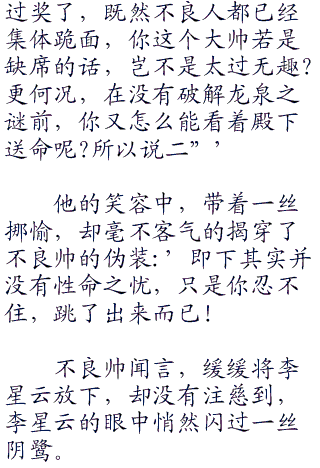 过奖了，既然不良人都已经
集体跪面，你这个大帅若是
缺席的话，岂不是太过无趣？
更何况，在没有破解龙泉之
谜前，你又怎么能看着殿下
送命呢？所以说二”’
他的笑容中，带着一丝
揶愉，却毫不客气的揭穿了
不良帅的伪装：’即下其实并
没有性命之忧，只是你忍不
住，跳了出来而已！
不良帅闻言，缓缓将李
星云放下，却没有注慈到，
李星云的眼中悄然闪过一丝
阴鹭。